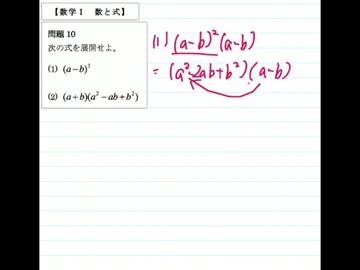 【数学Ⅰ 数と式】
問題 10
次の式を展開せよ。
(1) (a−b)³
(2) (a+b)(a²−ab+b²)
(1) (a-b)²(a-b)
= (a²-2ab+b²)(a-b)